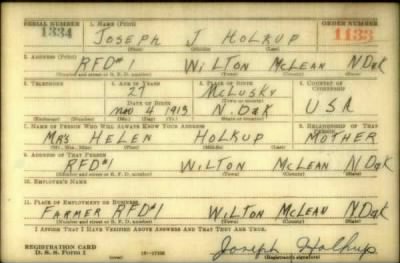 SERIAL NUMBER 1. NAME (Print) ORDER NUMBER
1334 JOSEPH J HOLKUP 1133
(First) (Middle) (Last)
2. ADDRESS (Print)
RFD#1 WILTON McLEAN N Dak
(Number and street or R. F. D. number) (Town) (County) (State)
3. TELEPHONE 4. AGE IN YEARS 5. PLACE OF BIRTH 6. COUNTRY OF CITIZENSHIP
27 McLUSKY
DATE OF BIRTH (Town or county)
Nov 4 1913 N. Dak USA
(Mo.) (Day) (Yr.) (State or country)
7. NAME OF PERSON WHO WILL ALWAYS KNOW YOUR ADDRESS 8. RELATIONSHIP OF THAT PERSON
MRS HELEN HOLKUP MOTHER
(Mr., Mrs., Miss) (First) (Middle) (Last)
9. ADDRESS OF THAT PERSON
RFD#1 WILTON McLEAN N Dak
(Number and street or R. F. D. number) (Town) (County) (State)
10. EMPLOYER'S NAME
11. PLACE OF EMPLOYMENT OR BUSINESS
FARMER RFD#1 WILTON McLEAN N Dak
(Number and street or R. F. D. number) (Town) (County) (State)
I AFFIRM THAT I HAVE VERIFIED ABOVE ANSWERS AND THAT THEY ARE TRUE.
REGISTRATION CARD
D. S. S. Form 1 Joseph Holkup
(Registrant's signature)